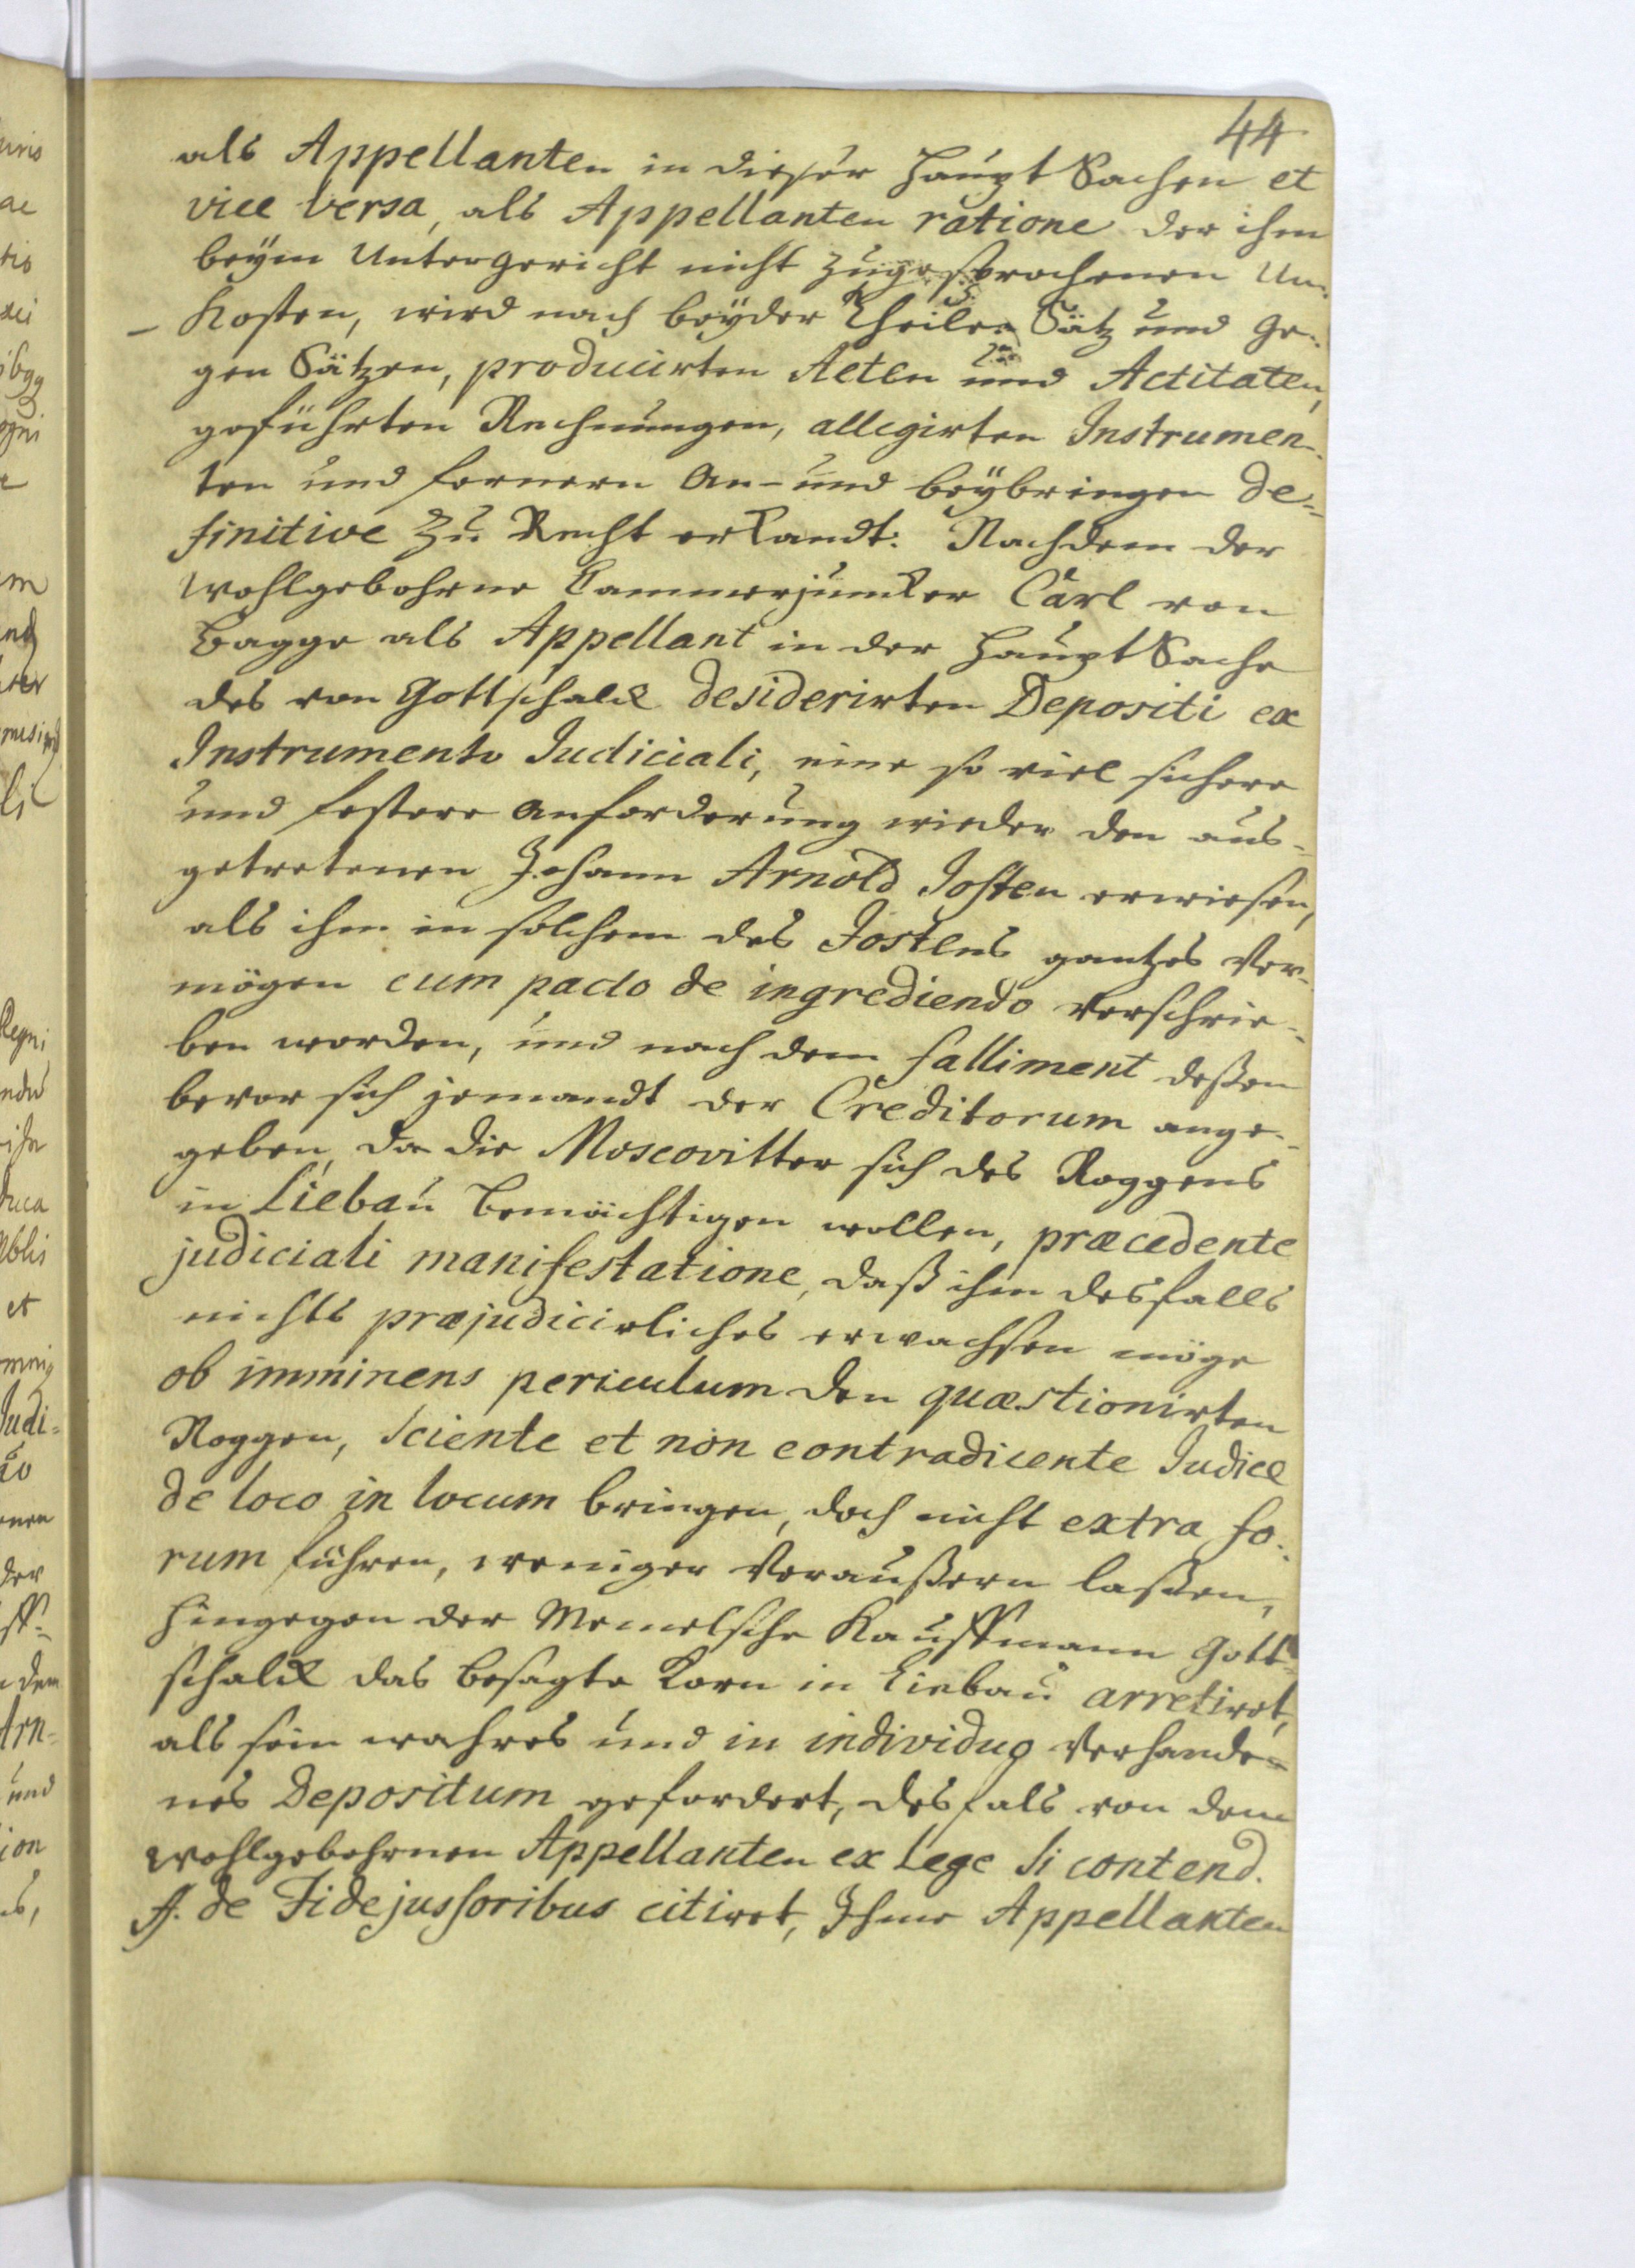 44
als Appellanten in dieser Haupt Sachen et
vice versa, als Appellanten ratione der ihm
beym Untergericht nicht zugesprochenen Un-
Kosten, wird nach beyder Theilen Sätz und Ge-
gen Sätzen, producirten Acten und Actitaten,
geführten Rechnungen, allegirten Instrumen-
ten und fernern An- und beybringen de-
finitive zu Recht erkandt: Nachdem der
Wohlgebohrne Cammerjuncker Carl von
Bagge als Appellant in der Haupt Sache
des von Gottschalck desiderirten Depositi ex
Instrumento Judiciali, eine so viel sichere
und festere Anforderung wieder den aus-
getretenen Johann Arnold Josten erwiesen,
als ihm in solchem des Jostens gantzes Ver-
mögen cum pacto de ingrediendo verschrie-
ben worden, und nach dem falliment deßen
bevor sich jemandt der Creditorum ange-
geben, da die Moscovitter sich des Roggens
in Liebau bemächtigen wollen, præcedente
judiciali manifestatione, daß ihm desfalls
nichts præjudicirliches erwachsen möge
ob imminens periculum den quæstionirten
Roggen, sciente et non contradicente Judice
de loco in locum bringen, doch nicht extra fo-
rum führen, weniger veraußern laßen,
hingegen der Memelsche Kauffmann Gott-
schalck das besagte Korn in Liebau arretiret,
als sein wahres und in individuo verhande-
nes Depositum gefordert, desfals von dem
Wohlgebohrnen Appellanten ex Lege Si contend.
ff. de Fidejussoribus citiret, Ihme Appellanten